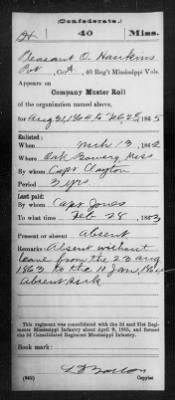 (Confederate.)
H 40 Miss.
Pleasant O. Hankins
Pvt, Co. H, 40 Reg't Mississippi Vols.
Appears on
Company Muster Roll
of the organization named above,
for Aug 31, 1864 to Feb 28, 1865
Enlisted:
When Mch 13, 1862
Where Oak Bowery, Miss
By whom Capt Clayton
Period 3 yrs
Last paid:
By whom Capt Jones
To what time Feb 28, 1863
Present or absent Absent
Remarks Absent without
leave from the 23 aug
1863 to the 11 Jan, 1864
Absent sick
This regiment was consolidated with the 3d and 31st Regiments
Mississippi Infantry about April 9, 1865, and formed the
3d Consolidated Regiment Mississippi Infantry.
Book mark:
(642) Copyist.